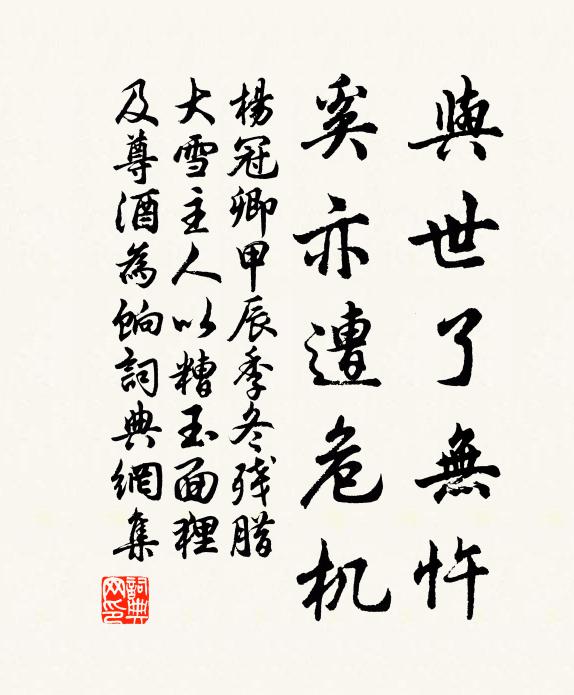 與世了無忤
奚亦遭危机
楊冠卿甲辰季冬残腊
大雪主人以糟玉面狸
及尊酒為餉詞典網集
詞典網印